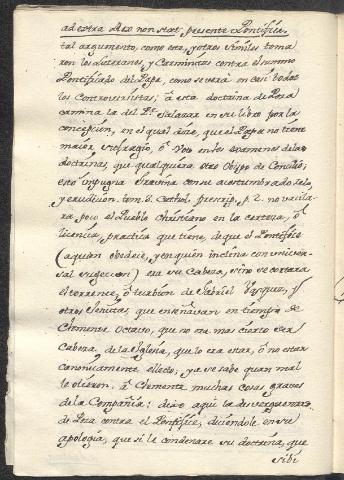 ad extra Rex non stat, presente Pontifice
tal argumento, como este, y otros similes toma
ron los Luteranos, y Calvinistas contra el summo
Pontificado del Papa, como se verá en casi todos
los Controversistas; á esta doctrina de Poza
camina la del Pe. Salazar en su libro por la
concepcion, en el qual dice, que el Papa no tiene
maior sufragio, ó Voto en los examenes de las
doctrinas, que qualquiera otro Obispo de Concilio;
esto impugna Gravina con su acostumbrado zelo
y erudicion tom. 2. Cathol. prescrip. p. 2. no vacila
ra poco el Pueblo Christiano en la certeza, ó
licencia, practica que tiene, de que el Pontifice
(aquien obedece, y en quien inclina con univer
sal sugeccion) era su Cabeza, sino se cortara
el torrente, ó turbion de Gabriel Vazquez, y
otros Jesuitas que enseñavan en tiempo de
Clemente Octavo, que no era mas cierto ser
Cabeza de la Iglesia, que lo era estar, ó no estar
canonicamente electo; ya se sabe quan mal
le olieron á Clemente muchas cosas graves
de la Compañia: dexo aqui la desverguenza
de Poza contra el Pontifice, diciendole en su
apologia, que si le condenare su doctrina, que
sibi